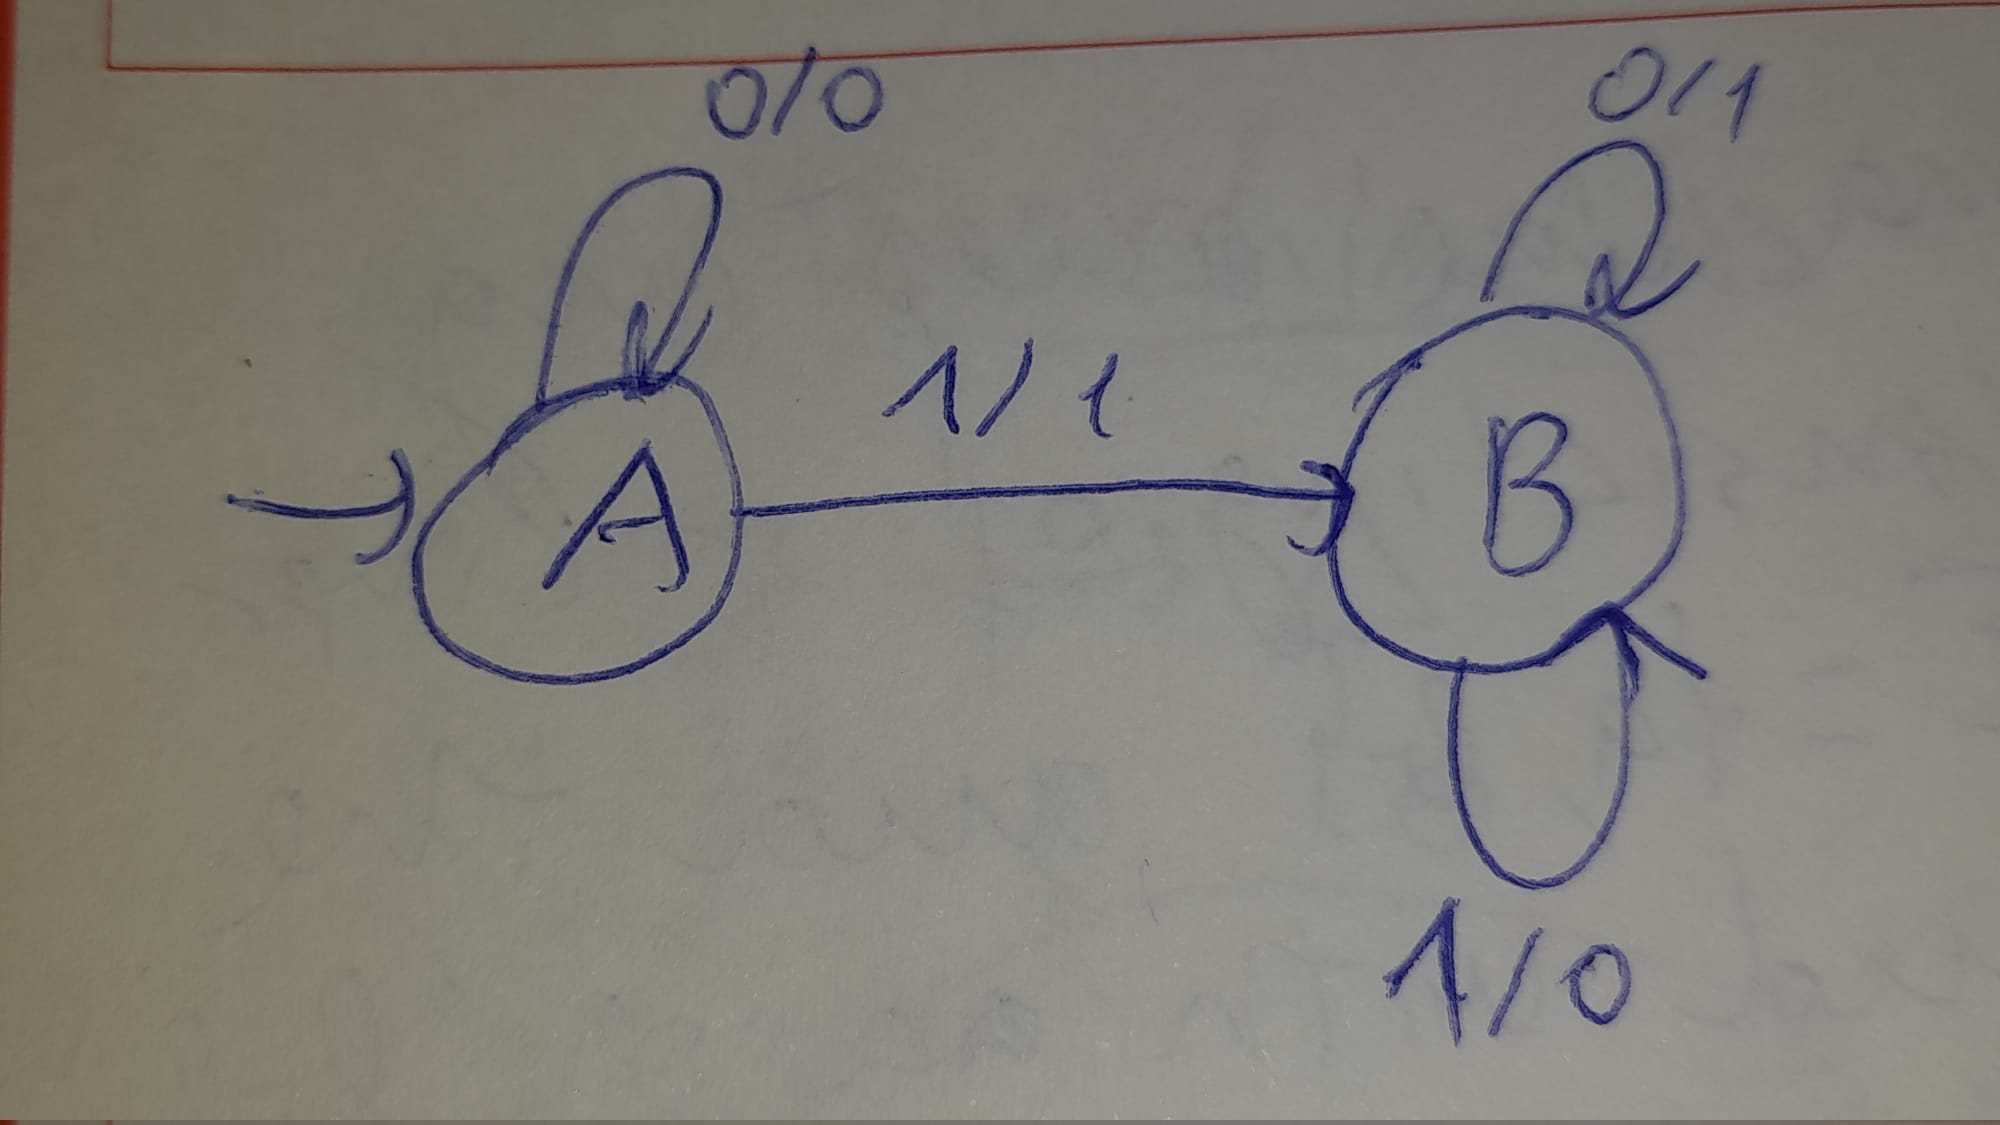 0/0
0/1
1/1
A
B
1/0